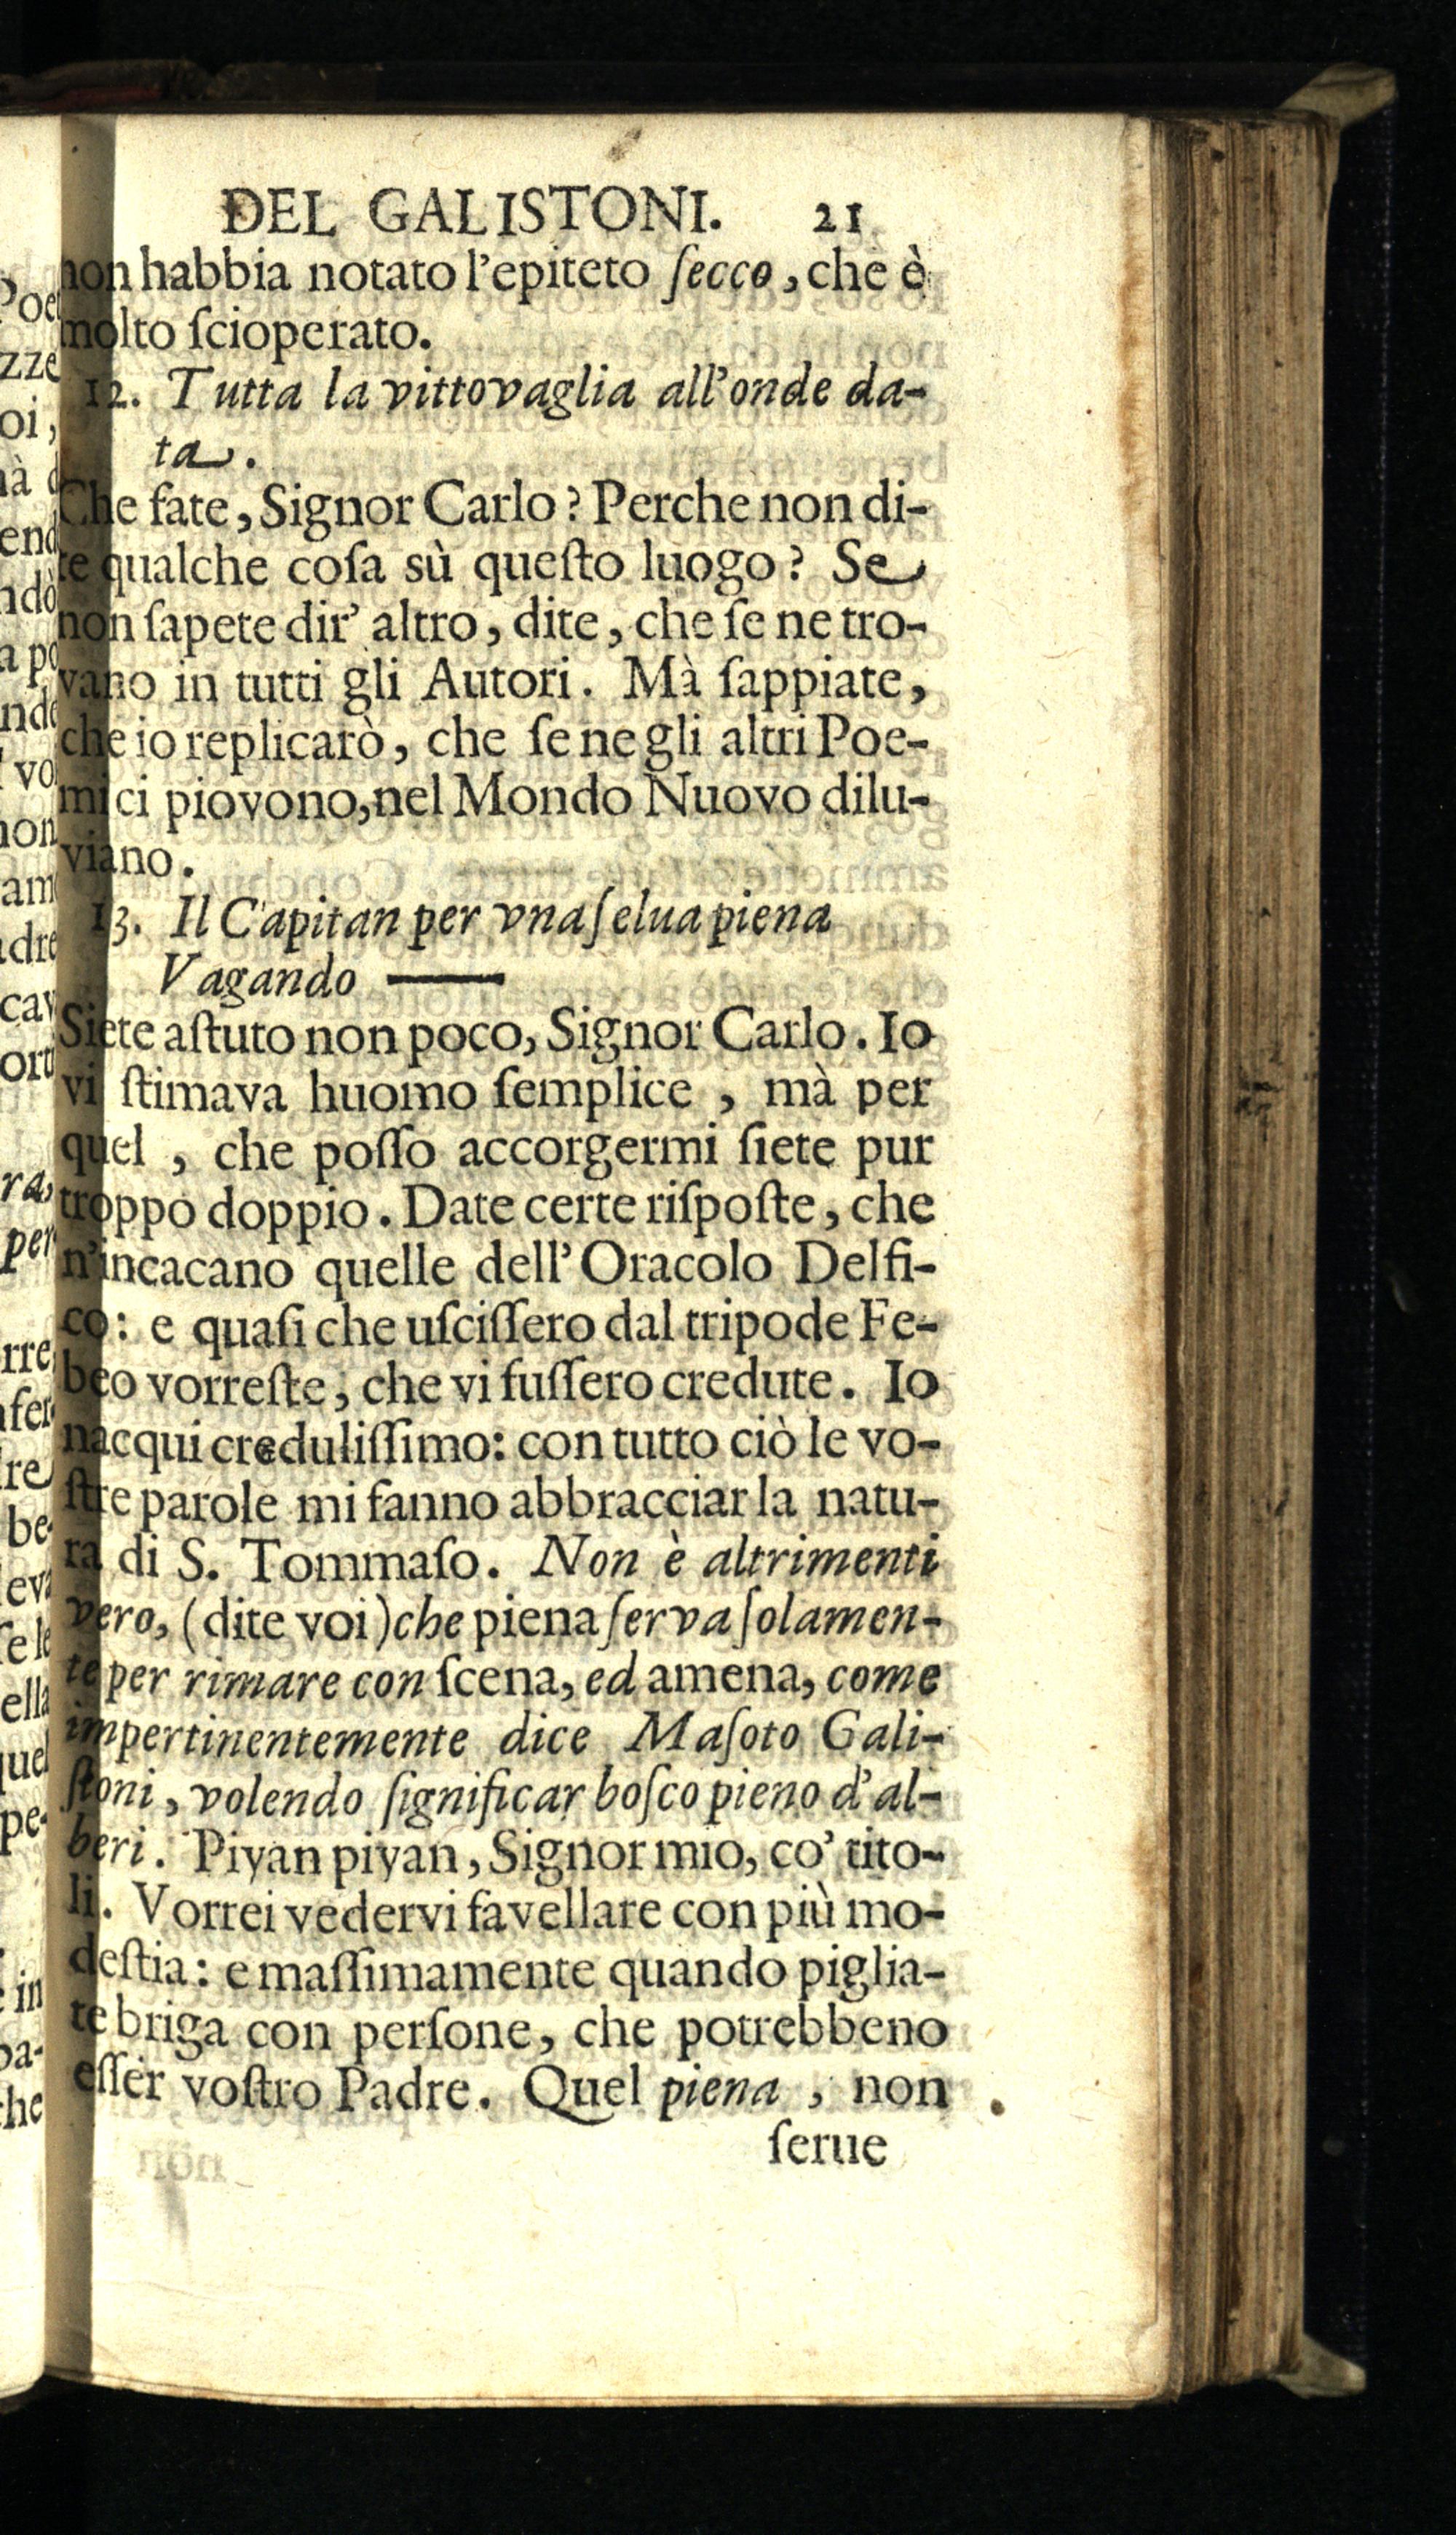 DEL GALISTONI. 21
non habbia notato l'epiteto ſecco, che è
molto ſcioperato.
12. Tutta la vittovaglia all'onde da-
ta.
Che fate, Signor Carlo? Perche non di-
te qualche coſa sù queſto luogo? Se
non ſapete dir' altro, dite, che ſe ne tro-
vano in tutti gli Autori. Mà ſappiate,
che io replicarò, che ſe negli altri Poe-
mi ci piovono, nel Mondo Nuovo dilu-
viano.
13. Il Capitan per vna ſelua piena
Vagando ——
Siete aſtuto non poco, Signor Carlo. Io
vi ſtimava huomo ſemplice, mà per
quel, che poſſo accorgermi ſiete pur
troppo doppio. Date certe riſpoſte, che
n'incacano quelle dell' Oracolo Delfi-
co: e quaſi che uſciſſero dal tripode Fe-
beo vorreſte, che vi fuſſero credute. Io
nacqui creduliſſimo: con tutto ciò le vo-
ſtre parole mi fanno abbracciar la natu-
ra di S. Tommaſo. Non è altrimenti
vero, (dite voi) che piena ſerva ſolamen-
te per rimare con ſcena, ed amena, come
impertinentemente dice Maſoto Gali-
ſtoni, volendo ſignificar boſco pieno d'al-
beri. Piyan piyan, Signor mio, co' tito-
li. Vorrei vedervi favellare con più mo-
deſtia: e maſſimamente quando piglia-
te briga con perſone, che potrebbeno
eſſer voſtro Padre. Quel piena, non
ſerue